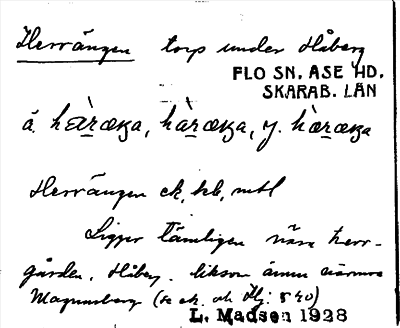 Herrängen torp under Håberg
FLO SN. ÅSE HD.
SKARAB. LÄN
Herrängen ek, hb, mtl
Ligger tämligen nära herr-
gården, Håberg. liksom ännu närmre
Magnusberg (se ek. och Hj. § 40)
L. Madsen 1928